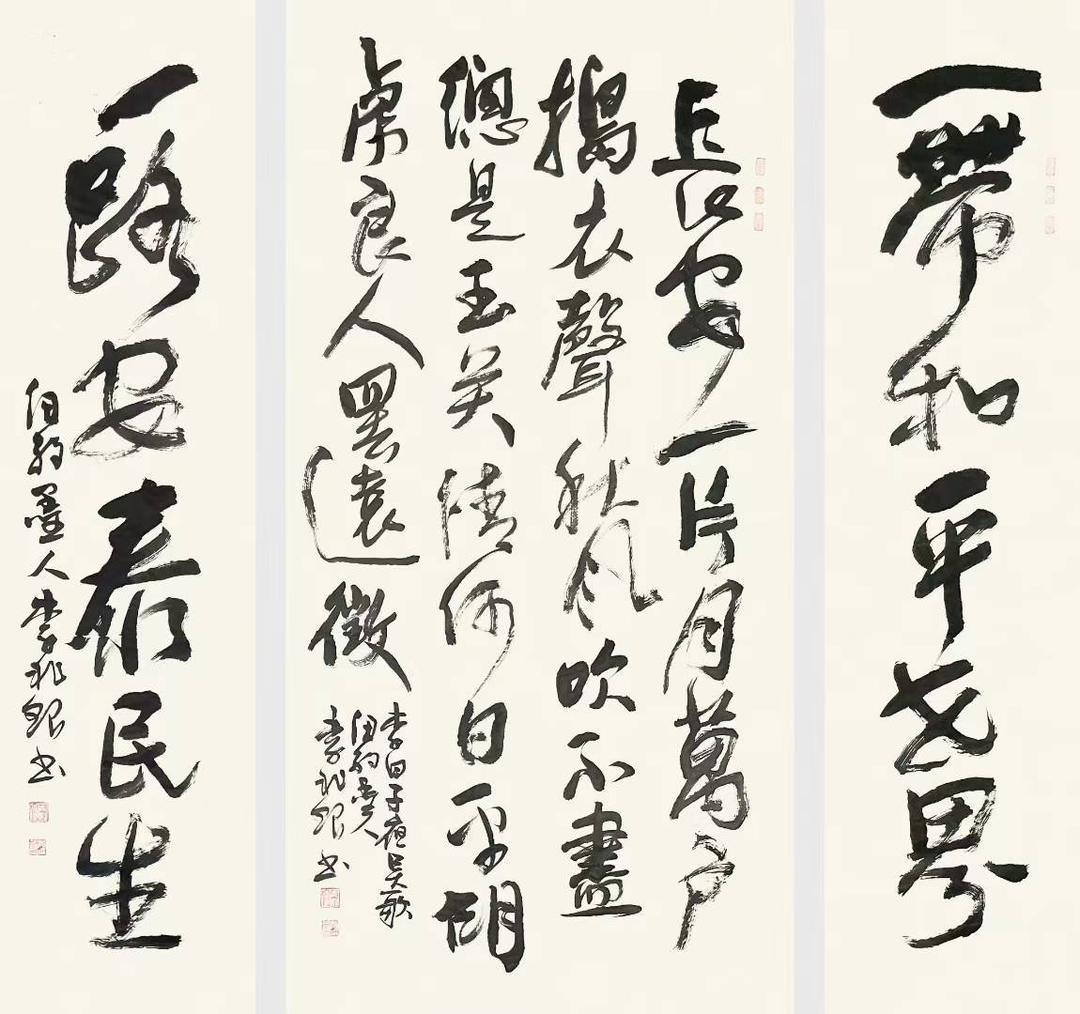 一帶和平世界
長安一片月萬戶
搗衣聲秋風吹不盡
總是玉关情何日平胡
虜良人罷遠徵
李白子夜吳歌
紐約墨人
李兆銀书
一路安民生
紐約墨人李兆銀书